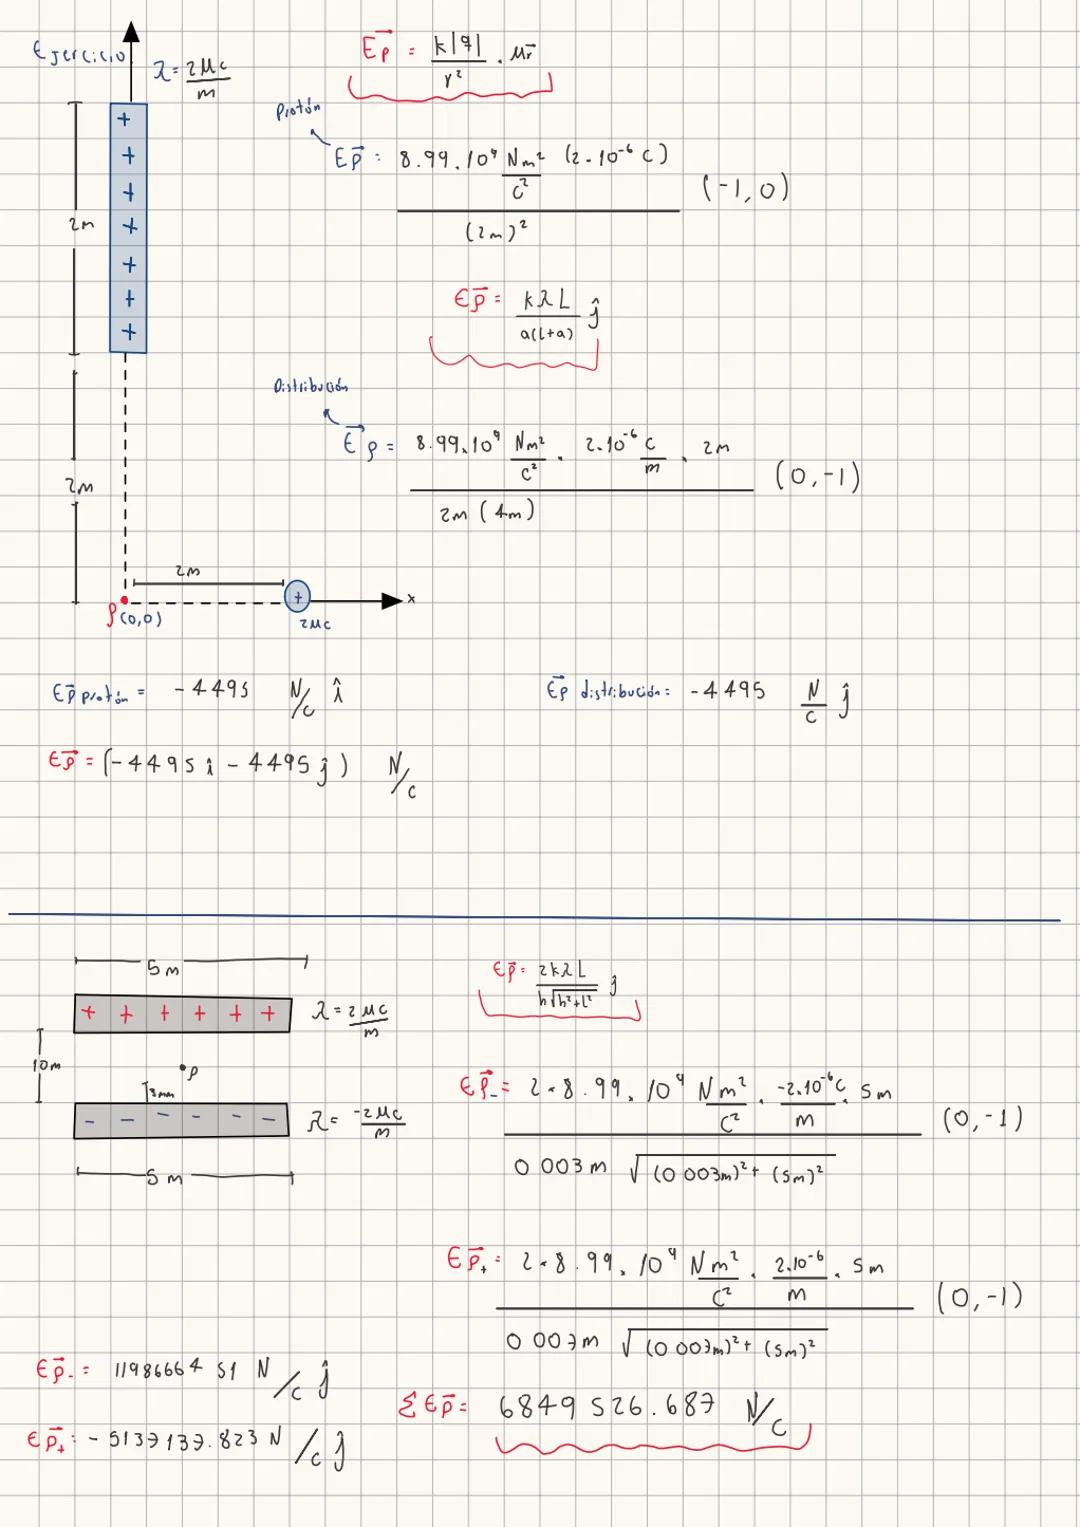 Ejercicio
λ = 2 Mc / m
+ + + + + + +
2m
2m
2m
+
x
P (0,0)
2Mc
Ep⃗ = k|q| / r² . Mr⃗
Protón
Ep⃗ : 8.99.10⁹ Nm²/c² (2.10⁻⁶ c) / (2m)² (-1,0)
Ep⃗ = kλL / a(L+a) ĵ
Distribución
E⃗p = 8.99.10⁹ Nm²/c² . 2.10⁻⁶ c/m . 2m / 2m (4m) (0,-1)
Ep⃗ protón = -4495 N/c î
Ep⃗ distribución: -4495 N/c ĵ
Ep⃗ = (-4495 î - 4495 ĵ) N/c
5m
+ + + + + +
λ = 2 Mc / m
10m
P
3mm
- - - - - -
λ = -2Mc / m
5m
Ep⃗ = 2kλL / h√h²+L² ĵ
Ep⃗₋ = 2.8.99.10⁹ Nm²/c² . -2.10⁻⁶c/m . 5m / 0.003m √(0.003m)²+(5m)² (0,-1)
Ep⃗₊ = 2.8.99.10⁹ Nm²/c² . 2.10⁻⁶/m . 5m / 0.007m √(0.007m)²+(5m)² (0,-1)
Ep⃗₋ = 11986664.51 N/c ĵ
Ep⃗₊ : -5137137.823 N/c ĵ
ΣEp⃗ = 6849526.687 N/c